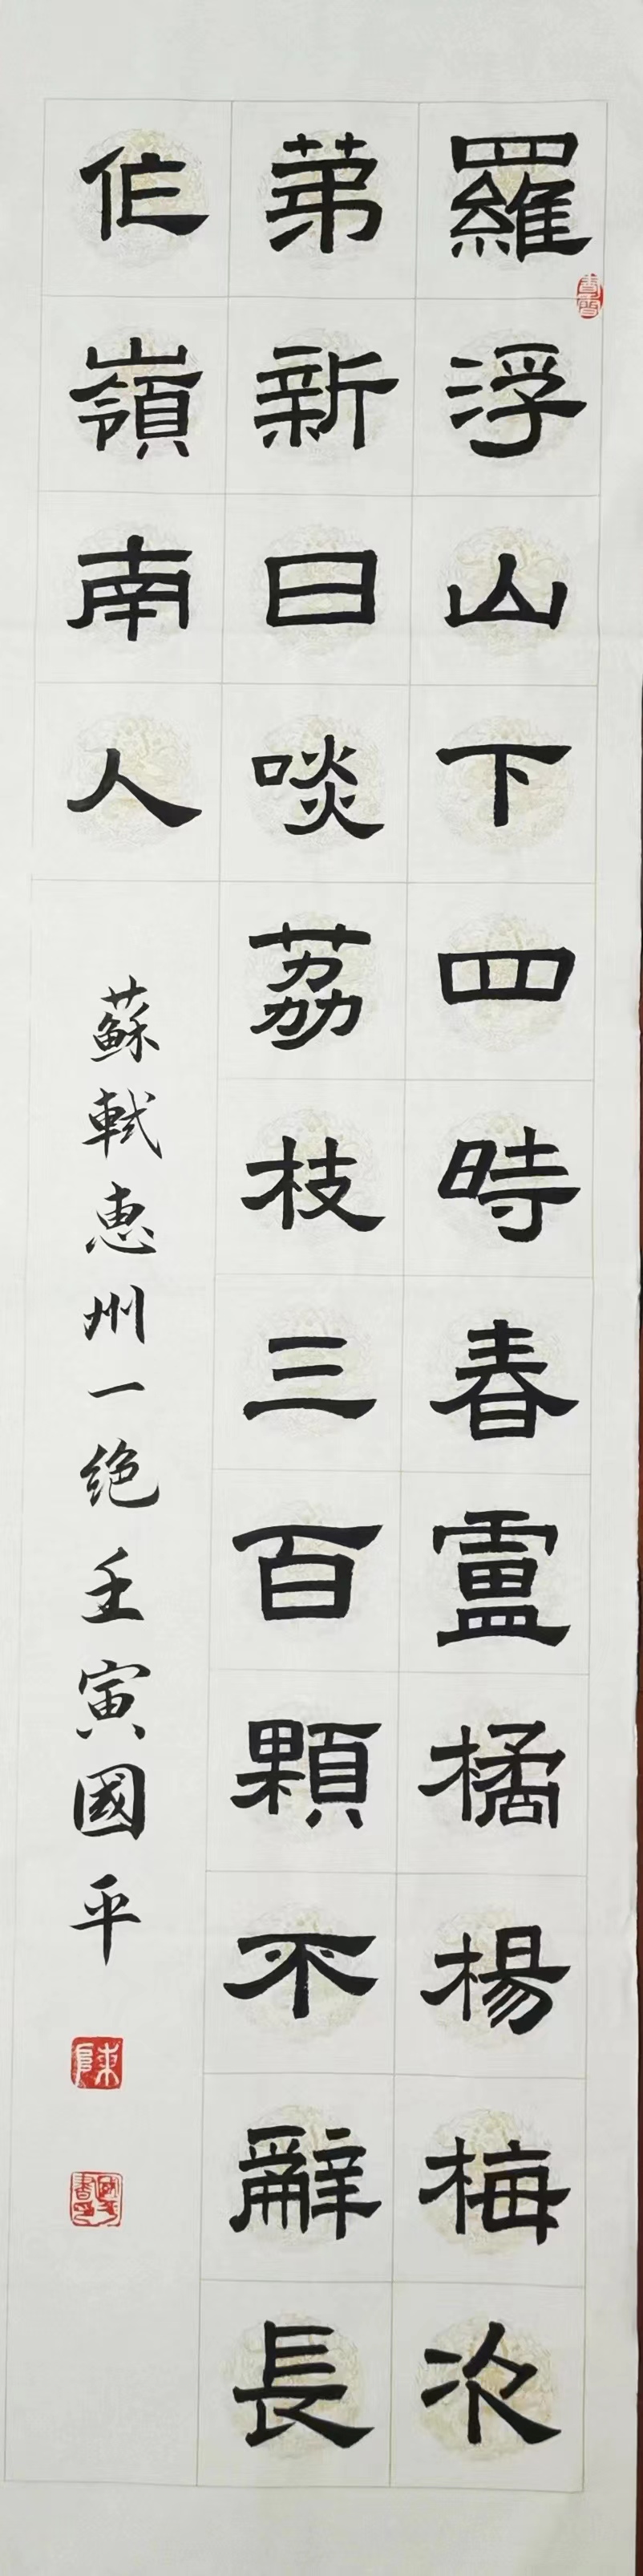 羅浮山下四時春盧橘楊梅次
苐新日啖荔枝三百顆不辭長
作嶺南人
蘇軾惠州一絶壬寅國平
陳